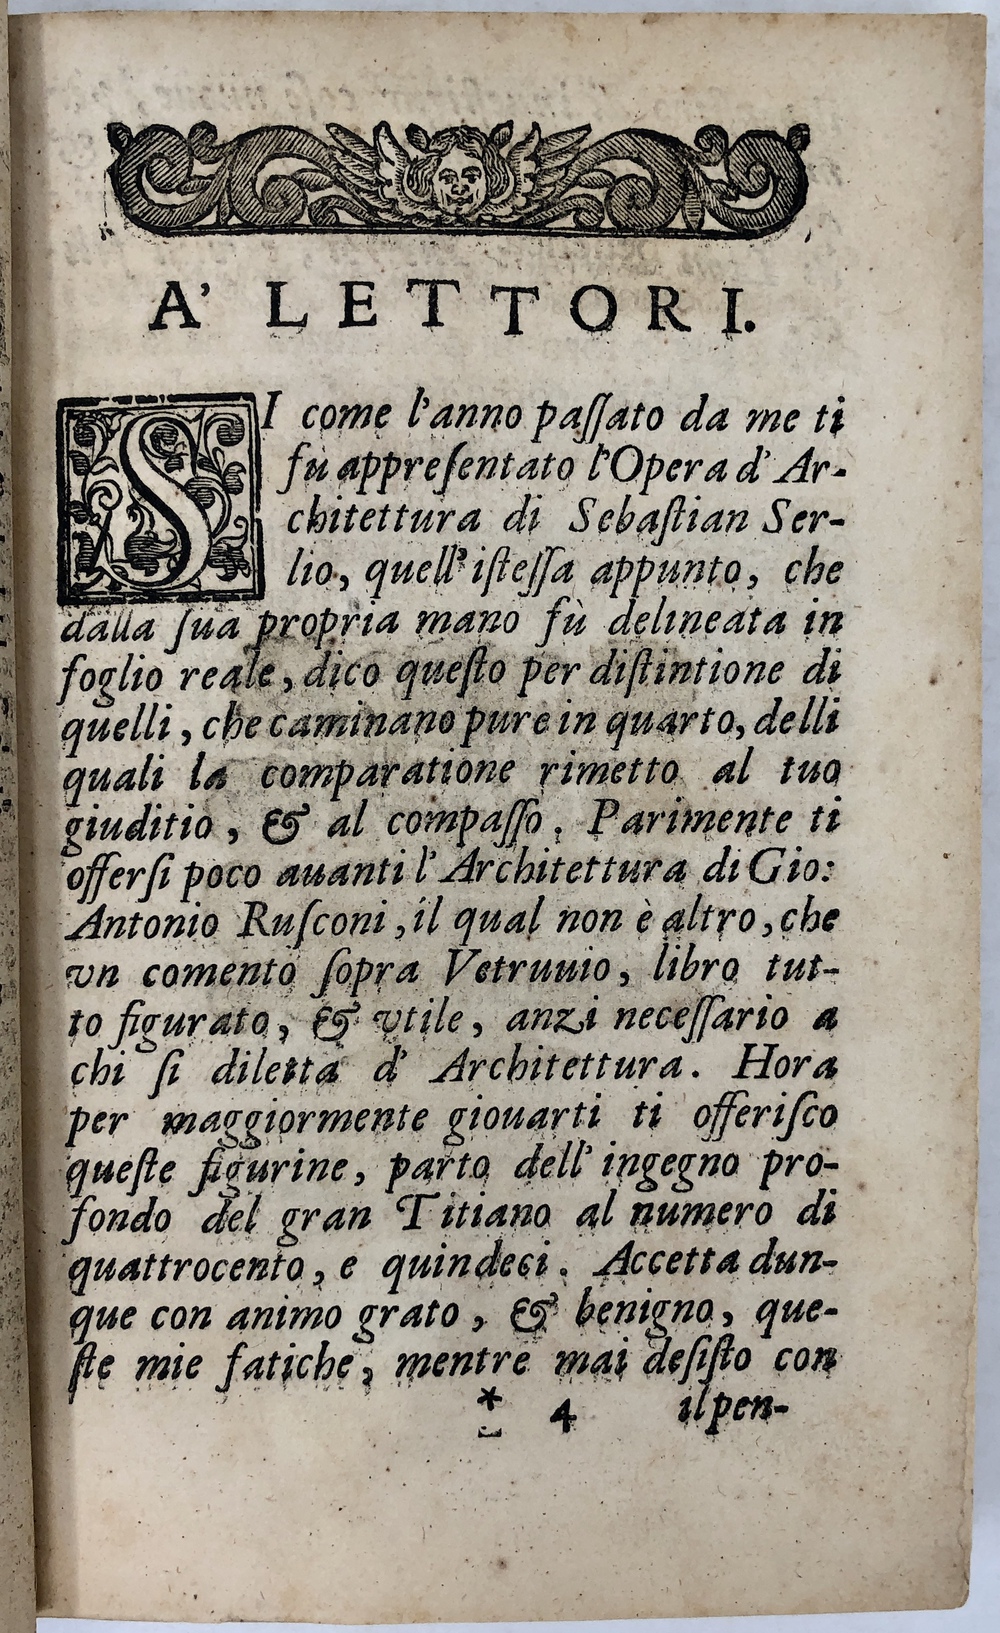 A' LETTORI.
SI come l'anno paſſato da me ti
fù appreſentato l'Opera d' Ar-
chitettura di Sebaſtian Ser-
lio, quell' iſteſſa appunto, che
dalla ſua propria mano fù delineata in
foglio reale, dico queſto per diſtintione di
quelli, che caminano pure in quarto, delli
quali la comparatione rimetto al tuo
giuditio, & al compaſſo. Parimente ti
offerſi poco auanti l' Architettura di Gio:
Antonio Ruſconi, il qual non è altro, che
vn comento ſopra Vetruuio, libro tut-
to figurato, & vtile, anzi neceſſario a
chi ſi diletta d' Architettura. Hora
per maggiormente giouarti ti offeriſco
queſte figurine, parto dell' ingegno pro-
fondo del gran Titiano al numero di
quattrocento, e quindeci. Accetta dun-
que con animo grato, & benigno, que-
ſte mie fatiche, mentre mai deſiſto con
* 4 il pen-